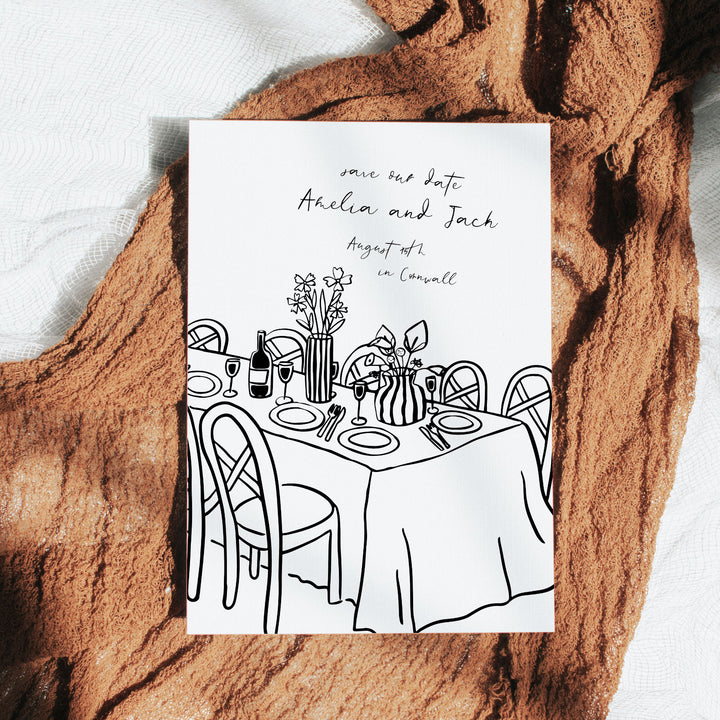 save our date
Amelia and Jack
August
in Cornwall